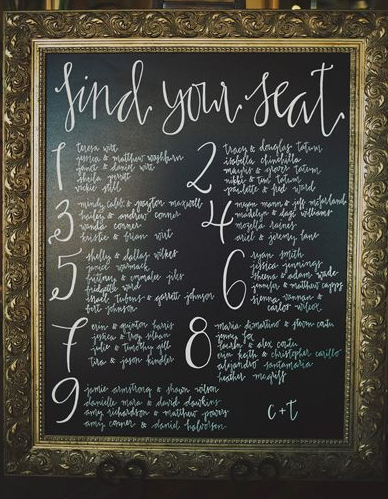 find your seat
1
teresa wirt
jessica & matthew washburn
janet & daniel wirt
sheila garrett
vickie still
2
tracy & douglas tatum
isabella chinchilla
mavis & grover tatum
nikki & tim tatum
paulette & fred ward
3
mindy, caleb, & payton maxwell
hailey & andrew conner
wanda conner
kristie & brian wirt
4
megan mann & jeff mcfarland
madelyn & dage williams
mozella raines
ariel & jeremy lane
5
shelly & dallas wilkes
janice warmack
brittney & jiles
ward
israel, & garrett johnson
bert johnson
6
ryan smith
jessica jennings
sheena & adam wade
jennifer & matthew capps
sienna &
carlos wilcox
7
erin & quinton harris
jessica & troy
julie & timothy
tira & jason kindler
8
maria & glenn
amy fox
& alex
erin keith & christopher carillo
alejandro santamaria
heather
9
jamie armstrong & shawn wilson
danielle mora & david dawkins
amy richardson & matthew
amy conner & daniel halvorsen
c + t